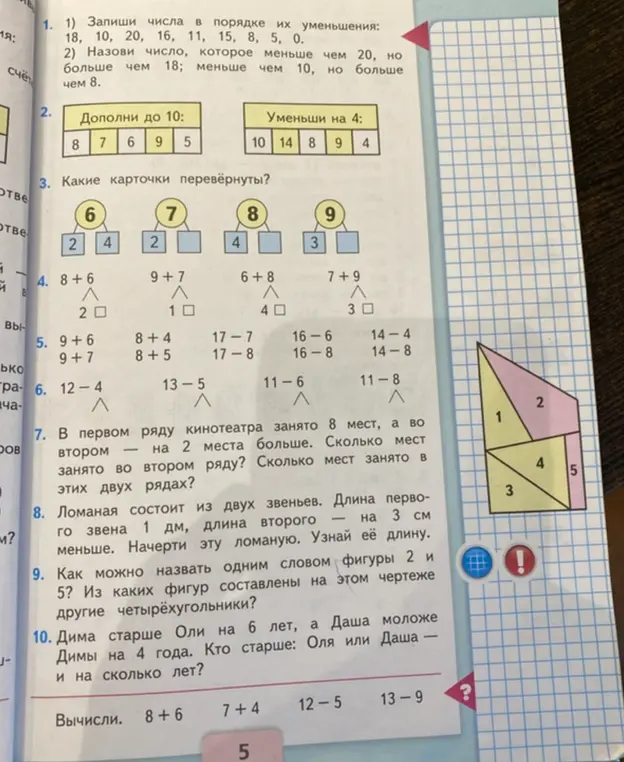 1. 1) Запиши числа в порядке их уменьшения:
18, 10, 20, 16, 11, 15, 8, 5, 0.
2) Назови число, которое меньше чем 20, но
больше чем 18; меньше чем 10, но больше
чем 8.
2. Дополни до 10: Уменьши на 4:
8 7 6 9 5 10 14 8 9 4
3. Какие карточки перевёрнуты?
6 7 8 9
2 4 2 4 3
4. 8 + 6 9 + 7 6 + 8 7 + 9
2 □ 1 □ 4 □ 3 □
5. 9 + 6 8 + 4 17 − 7 16 − 6 14 − 4
9 + 7 8 + 5 17 − 8 16 − 8 14 − 8
6. 12 − 4 13 − 5 11 − 6 11 − 8
7. В первом ряду кинотеатра занято 8 мест, а во
втором — на 2 места больше. Сколько мест
занято во втором ряду? Сколько мест занято в
этих двух рядах?
8. Ломаная состоит из двух звеньев. Длина перво-
го звена 1 дм, длина второго — на 3 см
меньше. Начерти эту ломаную. Узнай её длину.
9. Как можно назвать одним словом фигуры 2 и
5? Из каких фигур составлены на этом чертеже
другие четырёхугольники?
10. Дима старше Оли на 6 лет, а Даша моложе
Димы на 4 года. Кто старше: Оля или Даша —
и на сколько лет?
Вычисли. 8 + 6 7 + 4 12 − 5 13 − 9
?
5
1 2
4 5
3
!